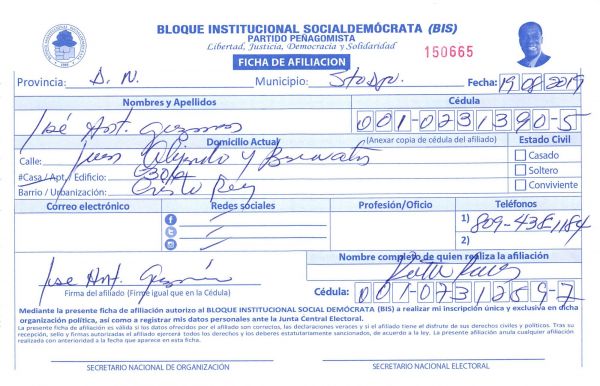 BLOQUE INSTITUCIONAL SOCIALDEMÓCRATA (BIS)
PARTIDO PEÑAGOMISTA
Libertad, Justicia, Democracia y Solidaridad
FICHA DE AFILIACION
150665
Provincia: D. N. Municipio: Sto Dgo. Fecha: 19/08/2019
Nombres y Apellidos
Cédula
José Ant. Guzmán
001-0231390-5
Domicilio Actual
(Anexar copia de cédula del afiliado)
Estado Civil
Calle: Juan Alejandro y
Casado
#Casa / Apt. / Edificio:
Soltero
Barrio / Urbanización: Cristo Rey
Conviviente
Correo electrónico
Redes sociales
Profesión/Oficio
Teléfonos
1) 809-438-1184
2)
José Ant. Guzmán
Nombre completo de quien realiza la afiliación
Firma del afiliado (Firme igual que en la Cédula)
Cédula: 001-0731259-7
Mediante la presente ficha de afiliación autorizo al BLOQUE INSTITUCIONAL SOCIAL DEMÓCRATA (BIS) a realizar mi inscripción única y exclusiva en dicha
organización política, así como a registrar mis datos personales ante la Junta Central Electoral.
La presente ficha de afiliación es válida si los datos ofrecidos por el afiliado son correctos, las declaraciones veraces y si el afiliado tiene el disfrute de sus derechos civiles y políticos. Tras su
recepción, sello y firmas autorizadas el afiliado ejercerá todos los derechos y los deberes estatutariamente sancionados, de acuerdo a la ley. La presente afiliación anula cualquier afiliación
realizada con anterioridad a la fecha que aparece en esta ficha.
SECRETARIO NACIONAL DE ORGANIZACIÓN
SECRETARIO NACIONAL ELECTORAL